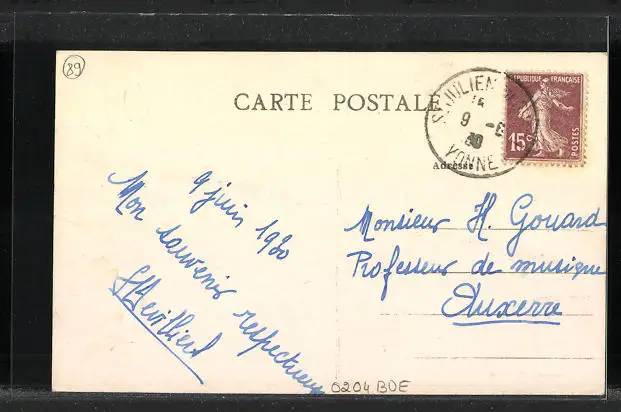 89
CARTE POSTALE
ST JULIEN
9 -6
30
YONNE
REPUBLIQUE FRANÇAISE
15c
POSTES
Adresse
9 juin 1930
Mon souvenir respectueux
Monsieur H. Gouard
Professeur de musique
Auxerre
0204 BDE